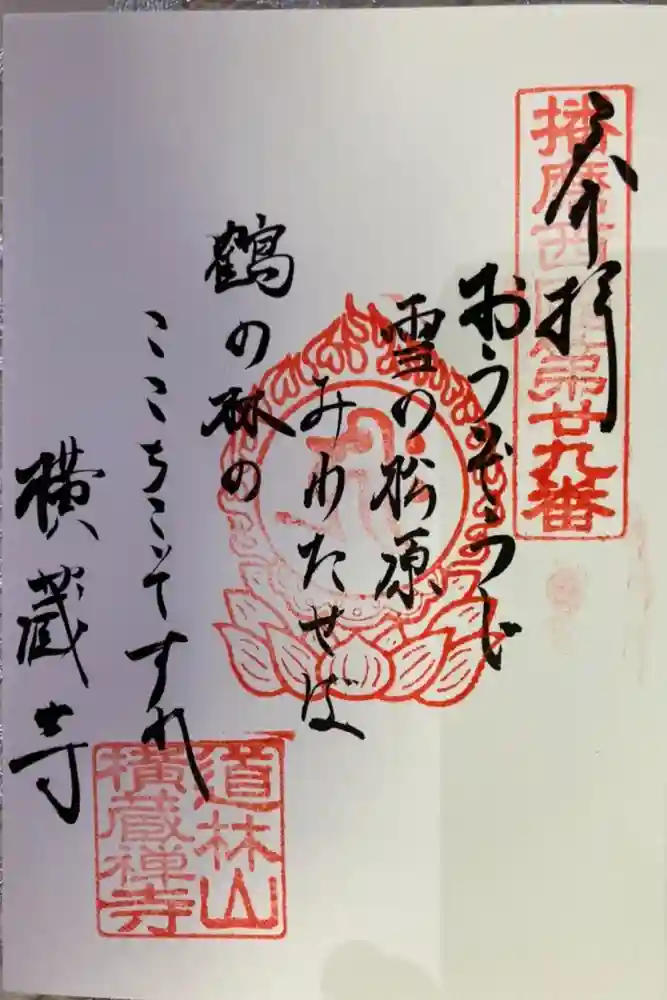 播磨西国第廿九番
奉拝
おうぞうじ
雪の松原
みわたせば
鶴の林の
ここちこそすれ
横蔵寺
道林山
横蔵禅寺